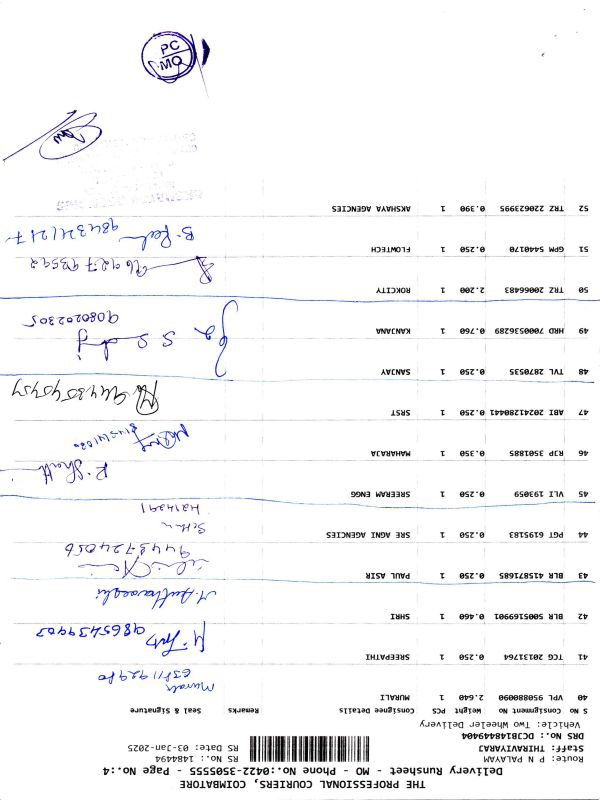 THE PROFESSIONAL COURIERS, COIMBATORE
Delivery Runsheet - MO - Phone No.:0422-3505555 - Page No.:4
Route: P N PALAYAM RS No.: 1484494
Staff: THIRAVIYARAJ RS Date: 03-Jan-2025
DRS No.: DCJB1484449404
Vehicle: Two Wheeler Delivery
S No Consignment No Weight PCS Consignee Details Remarks Seal & Signature
40 VPL 950880090 2.640 1 MURALI
Murali
41 TCG 20131764 0.250 1 SREEPATHI
9865439903
42 BLR 5005169901 0.460 1 SHRI
43 BLR 415871685 0.250 1 PAUL ASIR
9443724056
44 PGT 6195183 0.250 1 SRE AGNI AGENCIES
45 VLI 193059 0.250 1 SREERAM ENGG
46 RJP 3501885 0.350 1 MAHARAJA
47 ABI 20241280441 0.250 1 SRST
48 TVL 2870535 0.250 1 SANJAY
49 HRD 7000536289 0.760 1 KANJANA
9080202305
50 TRZ 20066483 2.200 1 ROKCITY
9692793592
51 GPM 5440170 0.250 1 FLOWTECH
9843211217
52 TRZ 220623995 0.390 1 AKSHAYA AGENCIES
PC
MO